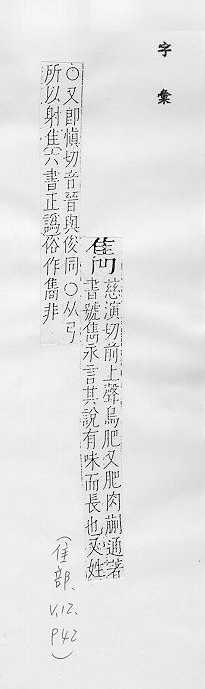 字彙
雋 慈演切前上聲鳥肥又肥肉蒯通著
書號雋永言其說有味而長也又姓
○又即愼切音晉與俊同○从弓
所以射隹六書正譌俗作雋非
(隹部、
V.12,
P42)